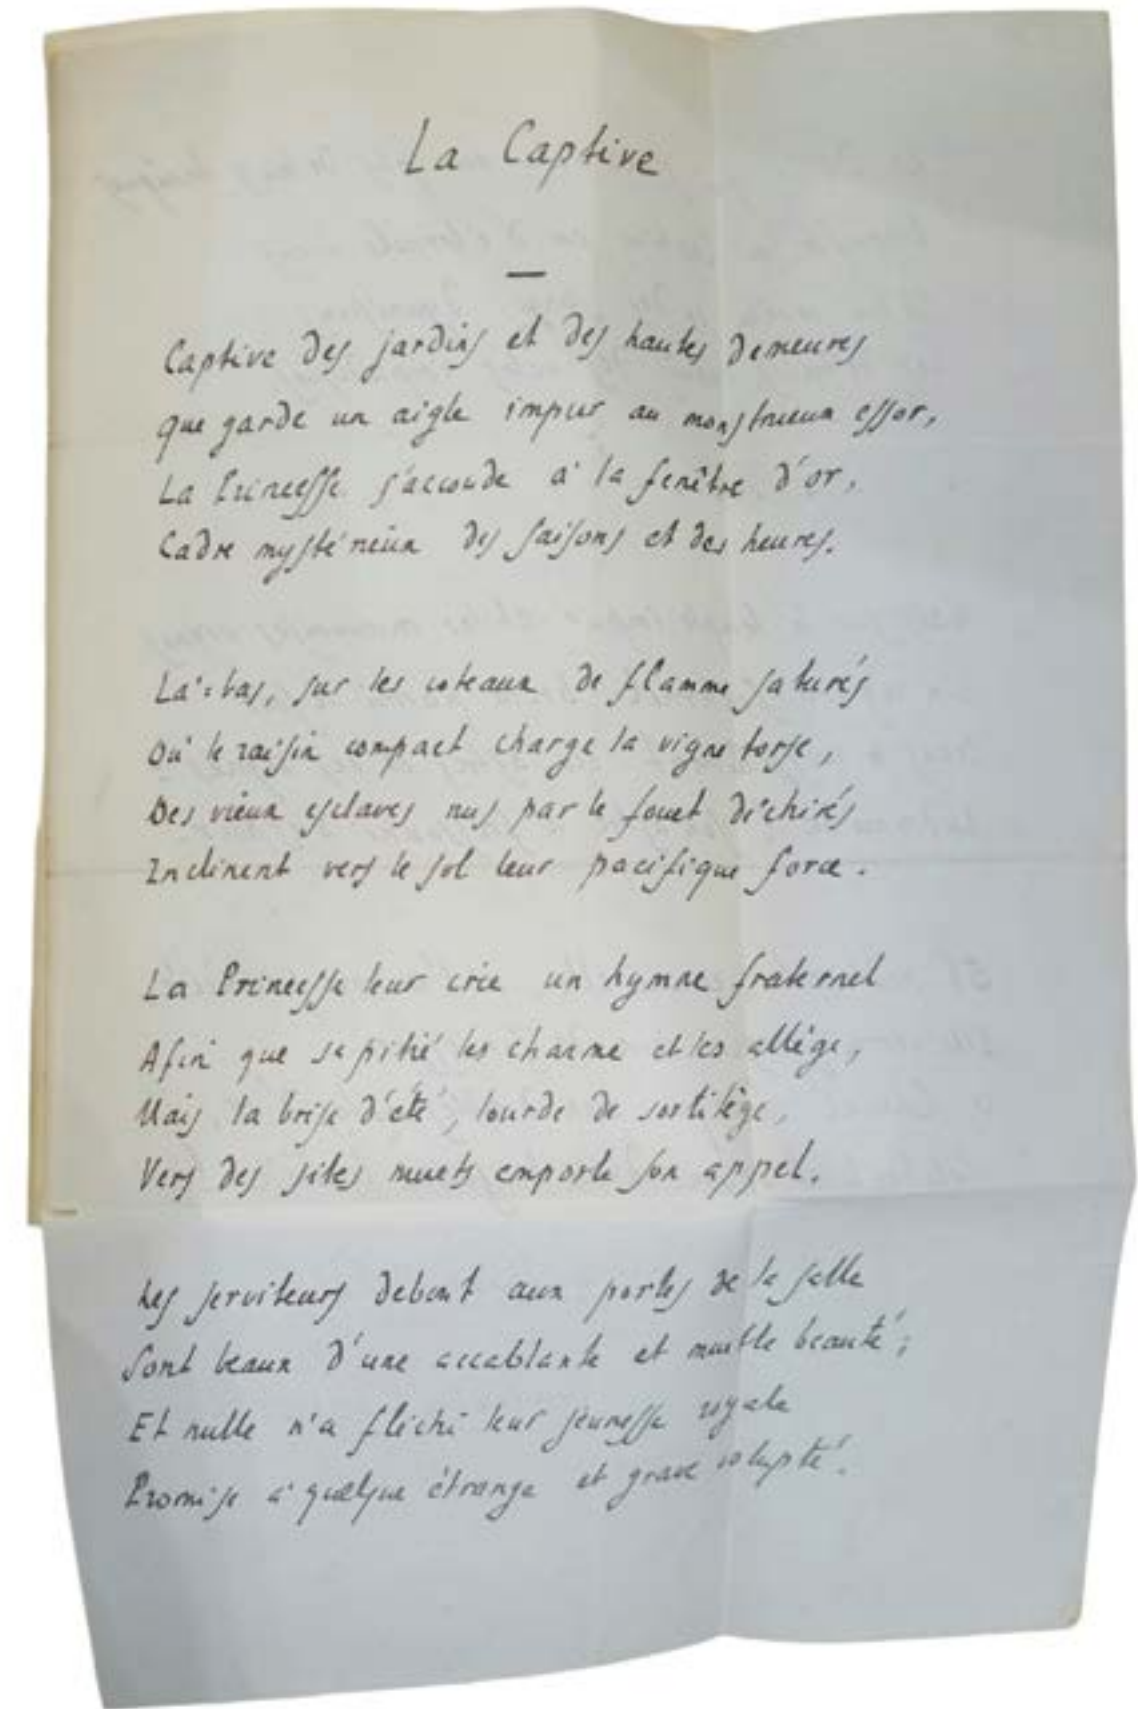 La Captive
—
Captive des jardins et des hautes demeures
Que garde un aigle impur au monstrueux essor,
La Princesse s'accoude à la fenêtre d'or,
Cadre mystérieux des saisons et des heures.
Là-bas, sur les coteaux de flamme saturés
Où le raisin compact charge la vigne torse,
Des vieux esclaves nus par le fouet déchirés
Inclinent vers le sol leur pacifique force.
La Princesse leur crie un hymne fraternel
Afin que sa pitié les charme et les allège,
Mais la brise d'été, lourde de sortilège,
Vers des sites muets emporte son appel.
Les serviteurs debout aux portes de la salle
Sont beaux d'une accablante et muette beauté;
Et nulle n'a fléchi leur jeunesse royale
Promise à quelque étrange et grave volupté.